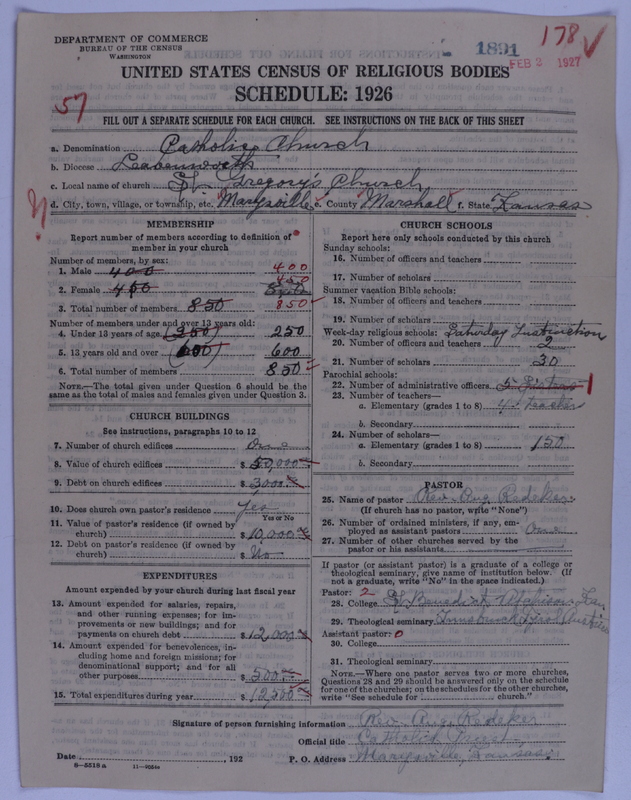 DEPARTMENT OF COMMERCE
BUREAU OF THE CENSUS
WASHINGTON
1891
178
FEB 2 1927
UNITED STATES CENSUS OF RELIGIOUS BODIES
SCHEDULE: 1926
57
FILL OUT A SEPARATE SCHEDULE FOR EACH CHURCH. SEE INSTRUCTIONS ON THE BACK OF THIS SHEET
a. Denomination Catholic Church
b. Diocese Leavenworth
c. Local name of church St. Gregory's Church
d. City, town, village, or township, etc. Marysville e. County Marshall f. State Kansas
MEMBERSHIP
Report number of members according to definition of member in your church
Number of members, by sex:
1. Male 400 400
2. Female 450 450
3. Total number of members 850 850
Number of members under and over 13 years old:
4. Under 13 years of age 250
5. 13 years old and over 600
6. Total number of members 850
NOTE.—The total given under Question 6 should be the
same as the total of males and females given under Question 3.
CHURCH BUILDINGS
See instructions, paragraphs 10 to 12
7. Number of church edifices One
8. Value of church edifices $ 50,000
9. Debt on church edifices $ 3000
10. Does church own pastor's residence Yes
Yes or No
11. Value of pastor's residence (if owned by
church) $ 10,000
12. Debt on pastor's residence (if owned by
church) $ No
EXPENDITURES
Amount expended by your church during last fiscal year
13. Amount expended for salaries, repairs,
and other running expenses; for im-
provements or new buildings; and for
payments on church debt $ 12,000
14. Amount expended for benevolences, in-
cluding home and foreign missions; for
denominational support; and for all
other purposes $ 500
15. Total expenditures during year $ 12500
CHURCH SCHOOLS
Report here only schools conducted by this church
Sunday schools:
16. Number of officers and teachers
17. Number of scholars
Summer vacation Bible schools:
18. Number of officers and teachers
19. Number of scholars
Week-day religious schools: Saturday Instruction
20. Number of officers and teachers 2
21. Number of scholars 30
Parochial schools:
22. Number of administrative officers 1
23. Number of teachers—
a. Elementary (grades 1 to 8) 4
b. Secondary
24. Number of scholars—
a. Elementary (grades 1 to 8) 150
b. Secondary
PASTOR
25. Name of pastor Rev. Aug. Redeker
(If church has no pastor, write "None")
26. Number of ordained ministers, if any, em-
ployed as assistant pastors One
27. Number of other churches served by the
pastor or his assistants
If pastor (or assistant pastor) is a graduate of a college or
theological seminary, give name of institution below. (If
not a graduate, write "No" in the space indicated.)
Pastor: 2
28. College St Benedict, Atchison, Kan.
29. Theological seminary Innsbruck Tyrol Austria
Assistant pastor: 0
30. College
31. Theological seminary
NOTE.—Where one pastor serves two or more churches,
Questions 28 and 29 should be answered only on the schedule
for one of the churches; on the schedules for the other churches,
write "See schedule for church."
Signature of person furnishing information Rev. Aug. Redeker
Official title Catholic Priest
Date , 192 P. O. Address Marysville, Kansas.
8—5518 a 11—9054a